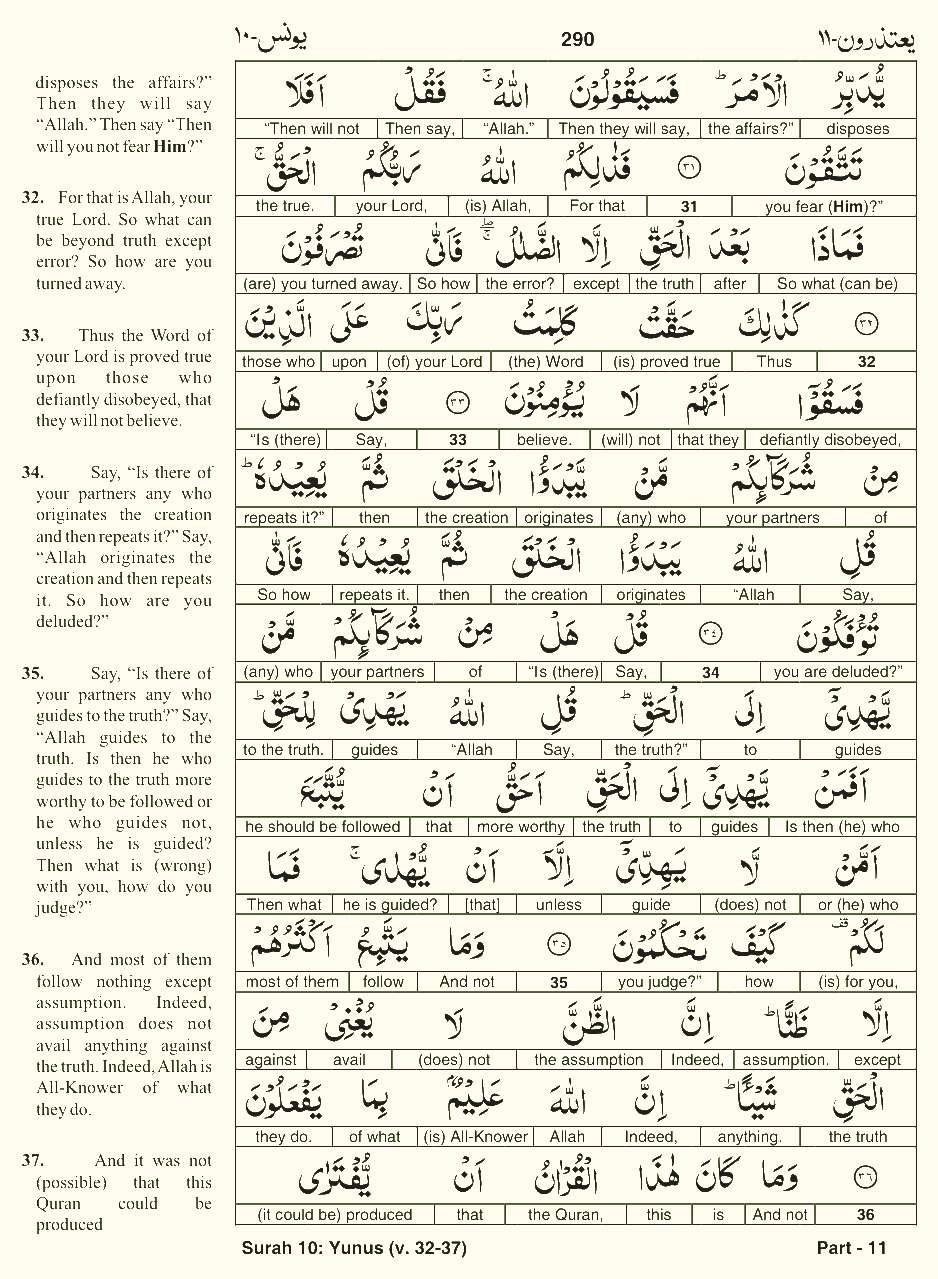 يونس-١٠ 290 يعتذرون-١١
disposes the affairs?”
Then they will say
“Allah.” Then say “Then
will you not fear Him?”
32. For that is Allah, your
true Lord. So what can
be beyond truth except
error? So how are you
turned away.
33. Thus the Word of
your Lord is proved true
upon those who
defiantly disobeyed, that
they will not believe.
34. Say, “Is there of
your partners any who
originates the creation
and then repeats it?” Say,
“Allah originates the
creation and then repeats
it. So how are you
deluded?”
35. Say, “Is there of
your partners any who
guides to the truth?” Say,
“Allah guides to the
truth. Is then he who
guides to the truth more
worthy to be followed or
he who guides not,
unless he is guided?
Then what is (wrong)
with you, how do you
judge?”
36. And most of them
follow nothing except
assumption. Indeed,
assumption does not
avail anything against
the truth. Indeed, Allah is
All-Knower of what
they do.
37. And it was not
(possible) that this
Quran could be
produced
يُّدَبِّرُ الْاَمْرَ ؕ فَسَيَقُوْلُوْنَ اللّٰهُ ۚ فَقُلْ اَفَلَا
“Then will not Then say, “Allah.” Then they will say, the affairs?” disposes
تَتَّقُوْنَ ﴿٣١﴾ فَذٰلِكُمُ اللّٰهُ رَبُّكُمُ الْحَقُّ ۚ
the true. your Lord, (is) Allah, For that 31 you fear (Him)?”
فَمَاذَا بَعْدَ الْحَقِّ اِلَّا الضَّلٰلُ ۖۚ فَاَنّٰى تُصْرَفُوْنَ
(are) you turned away. So how the error? except the truth after So what (can be)
﴿٣٢﴾ كَذٰلِكَ حَقَّتْ كَلِمَتُ رَبِّكَ عَلَى الَّذِيْنَ
those who upon (of) your Lord (the) Word (is) proved true Thus 32
فَسَقُوْۤا اَنَّهُمْ لَا يُؤْمِنُوْنَ ﴿٣٣﴾ قُلْ هَلْ
“Is (there) Say, 33 believe. (will) not that they defiantly disobeyed,
مِنْ شُرَكَآئِكُمْ مَّنْ يَّبْدَؤُا الْخَلْقَ ثُمَّ يُعِيْدُهٗ ؕ
repeats it?” then the creation originates (any) who your partners of
قُلِ اللّٰهُ يَبْدَؤُا الْخَلْقَ ثُمَّ يُعِيْدُهٗ فَاَنّٰى
So how repeats it. then the creation originates “Allah Say,
تُؤْفَكُوْنَ ﴿٣٤﴾ قُلْ هَلْ مِنْ شُرَكَآئِكُمْ مَّنْ
(any) who your partners of “Is (there) Say, 34 you are deluded?”
يَّهْدِيْۤ اِلَى الْحَقِّ ؕ قُلِ اللّٰهُ يَهْدِيْ لِلْحَقِّ ؕ
to the truth. guides “Allah Say, the truth?” to guides
اَفَمَنْ يَّهْدِيْۤ اِلَى الْحَقِّ اَحَقُّ اَنْ يُّتَّبَعَ
he should be followed that more worthy the truth to guides Is then (he) who
اَمَّنْ لَّا يَهِدِّيْۤ اِلَّاۤ اَنْ يُّهْدٰى ۚ فَمَا
Then what he is guided? [that] unless guide (does) not or (he) who
لَكُمْ ۫ كَيْفَ تَحْكُمُوْنَ ﴿٣٥﴾ وَمَا يَتَّبِعُ اَكْثَرُهُمْ
most of them follow And not 35 you judge?” how (is) for you,
اِلَّا ظَنًّا ؕ اِنَّ الظَّنَّ لَا يُغْنِيْ مِنَ
against avail (does) not the assumption Indeed, assumption. except
الْحَقِّ شَيْـًٔا ؕ اِنَّ اللّٰهَ عَلِيْمٌۢ بِمَا يَفْعَلُوْنَ
they do. of what (is) All-Knower Allah Indeed, anything. the truth
﴿٣٦﴾ وَمَا كَانَ هٰذَا الْقُرْاٰنُ اَنْ يُّفْتَرٰى
(it could be) produced that the Quran, this is And not 36
Surah 10: Yunus (v. 32-37) Part - 11